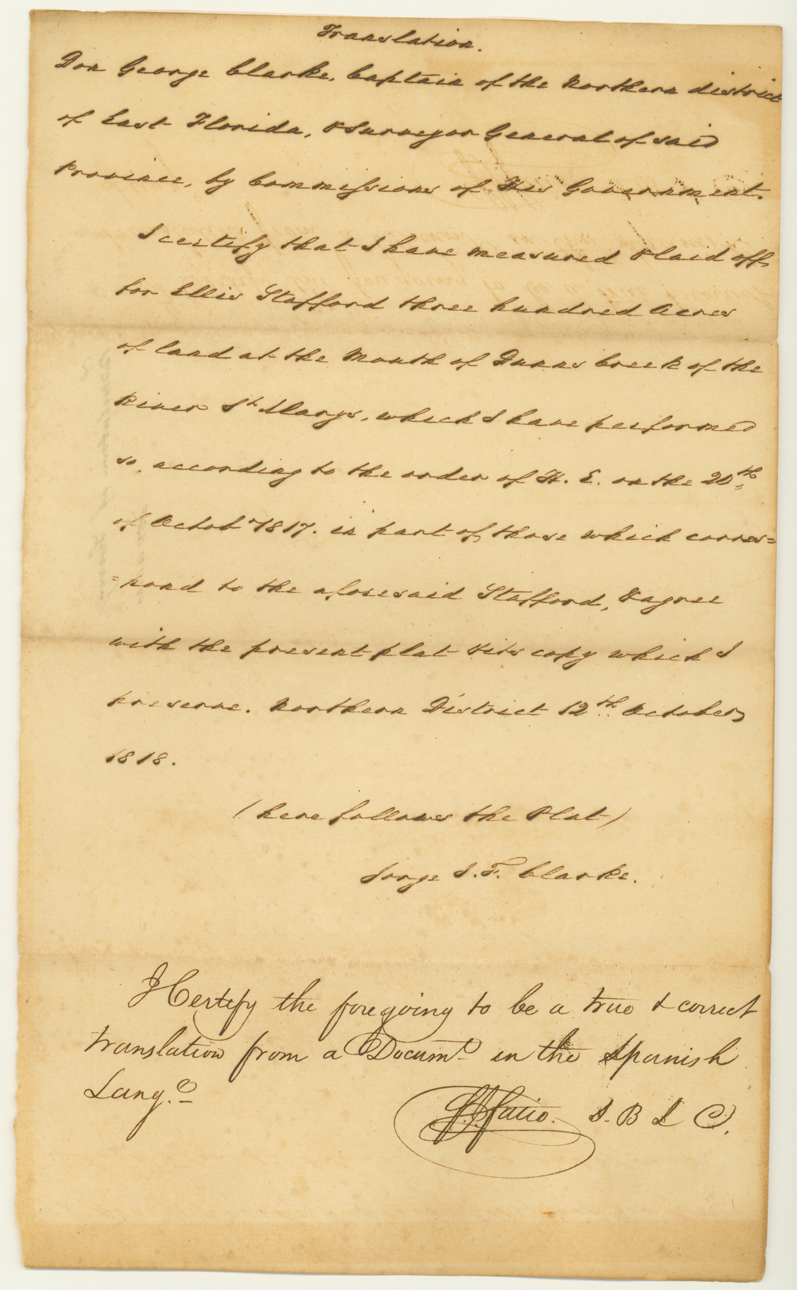 Translation.
Don George Clarke, Captain of the Northern district
of East Florida, & Surveyor General of said
Province, by Commissions of His Government.
I certify that I have measured & laid off
for Ellis Stafford three hundred Acres
of land at the Mouth of Dunns Creek of the
River St. Marys, which I have performed
so, according to the order of H. E. on the 20th
of Octobr 1817. in part of those which corres=
=pond to the aforesaid Stafford, & agree
with the present plat & its copy which I
preserve. Northern District 12th October
1818.
(here follows the Plat)
Jorge J. F. Clarke.
I Certify the foregoing to be a true & correct
translation from a Documt. in the Spanish
Lange.
F. J. Fatio. S. B. L. C.